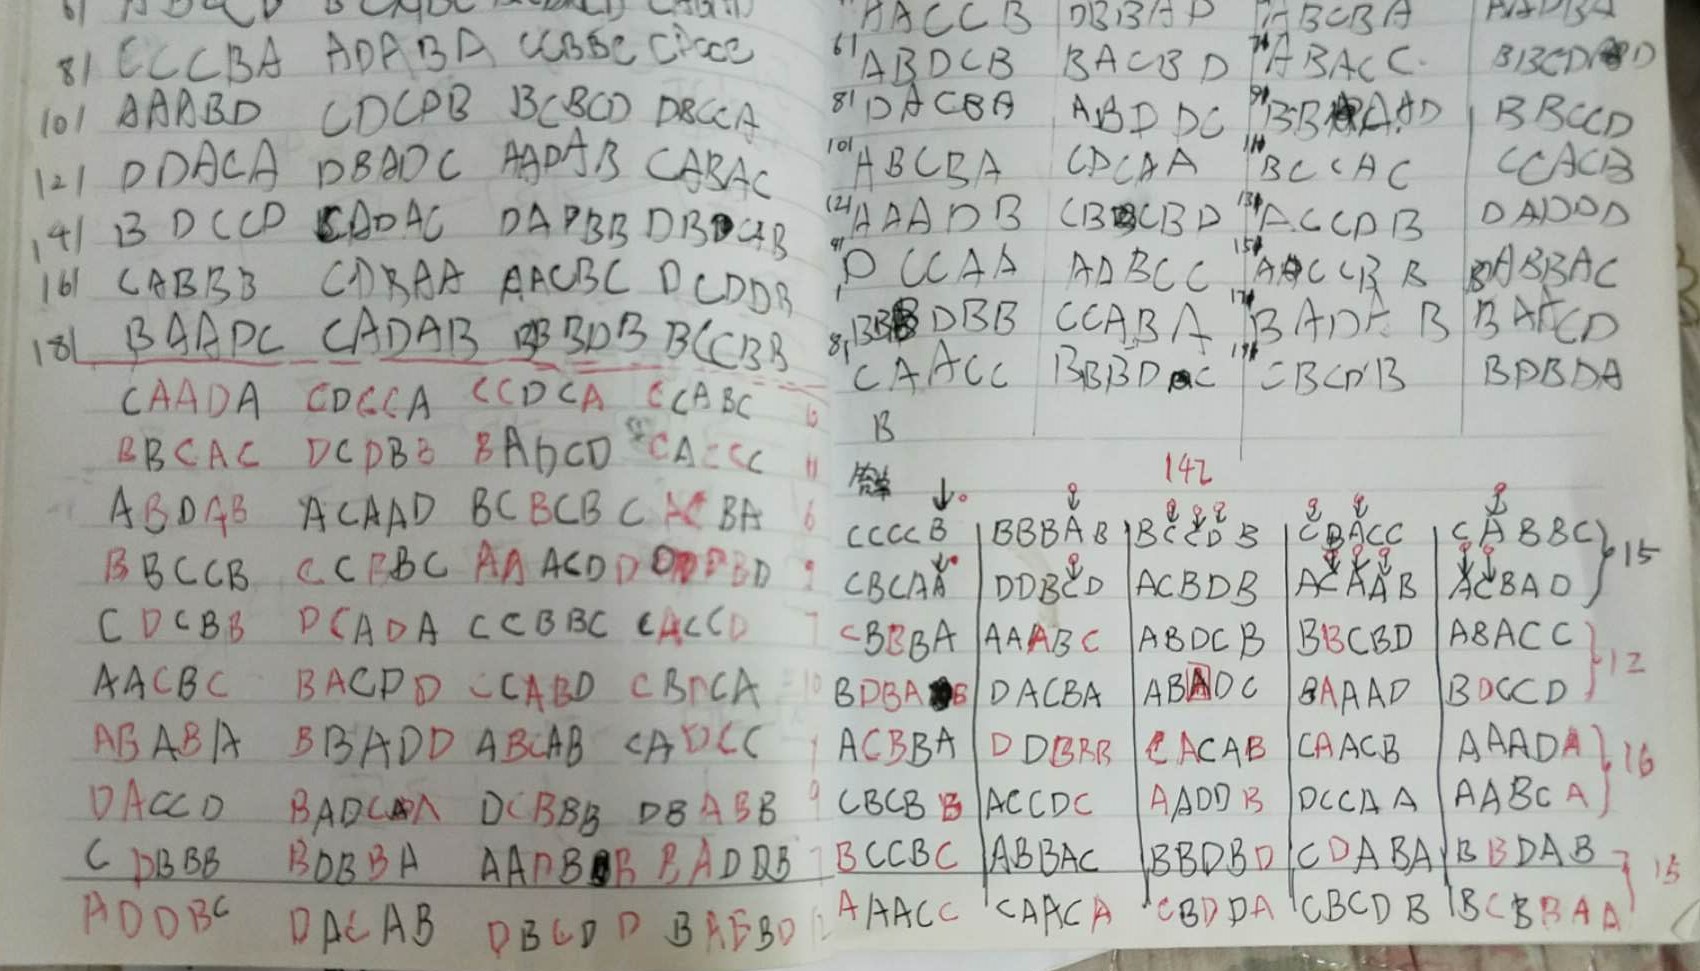 81 CCCBA ADABA CCBBC
101 AAABD CDCDB BCBCD DBCCA
121 DDACA DBADC AADAB CABAC
141 B DCCD CADAC DADBB
161 CABBB CDBAA AACBC DCDDB
181 BAADC CADAB BBDB BCCBB
CAADA CDCCA CCDCA CCABC 6
BBCAC DCDBB BADCD CACCC 11
ABDAB ACAAD BCBCB CACBA 6
BBCCB CCBBC AAACD 9
CDCBB DCADA CCBBC CACCD 7
AACBC BACDD CCABD CBDCA 10
ABABA BBADD ABCAB CADCC
DACCD BADCA DCBBB DBABB 9
CDBBB BDBBA AADBB BADDB 7
ADDBC DACAB DBCDD
AACCB DBBAD ABCBA AADBA
61 ABDCB BACBD ABACC
81 DACBA ABDDC BBAAD BBCCD
101 ABCBA CDCAA BCCAC CCACB
121 AAADB CBCBD ACCDB DADDD
DCCAA ADBCC ACCBB ABBAC
BBDBB CCABA BADAB BAACD
CAACC BBBDC CBCDB BDBDA
B
142
CCCCB BBBAB BCCDB CBACC CABBC 15
CBCAA DDBCD ACBDB ACAAB ACBAD
CBBBA AAABC ABDCB BBCBD ABACC 12
BDBAB DACBA ABADC BAAAD BDCCD
ACBBA DDBBB CACAB CAACB AAADA 16
CBCBB ACCDC AADDB DCCAA AABCA
BCCBC ABBAC BBDBD CDABA BBDAB 15
AAACC CAACA CBDDA CBCDB BCBBAA